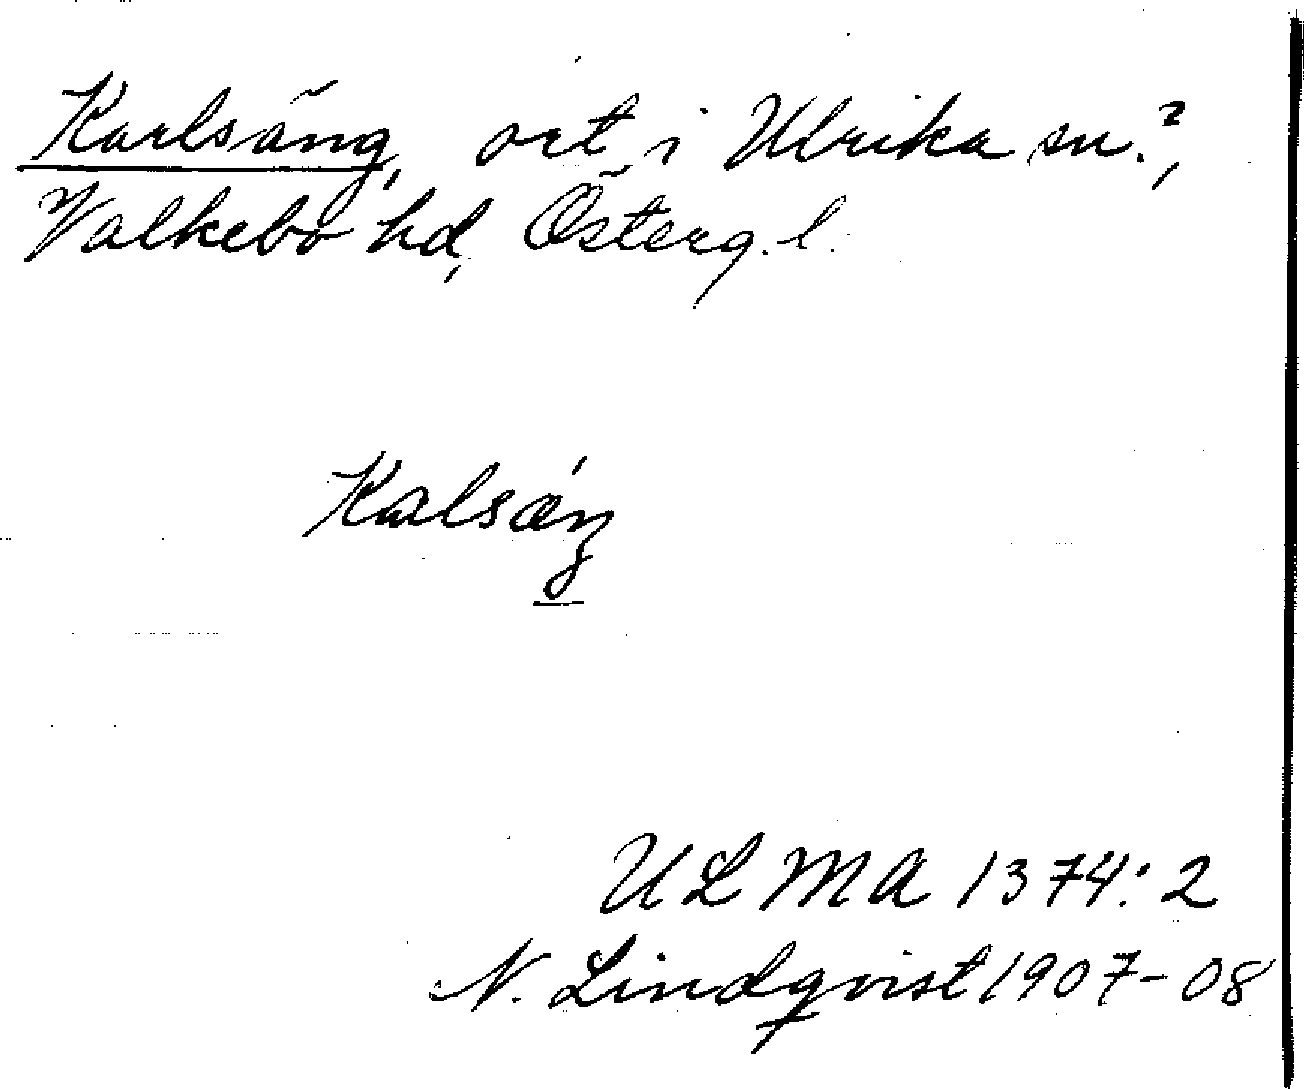 Karlsäng, ort i Ulrika sn.?,
Valkebo hd, Österg. l.
Kalsǽŋ
ULMA 1374:2
N. Lindqvist 1907-08